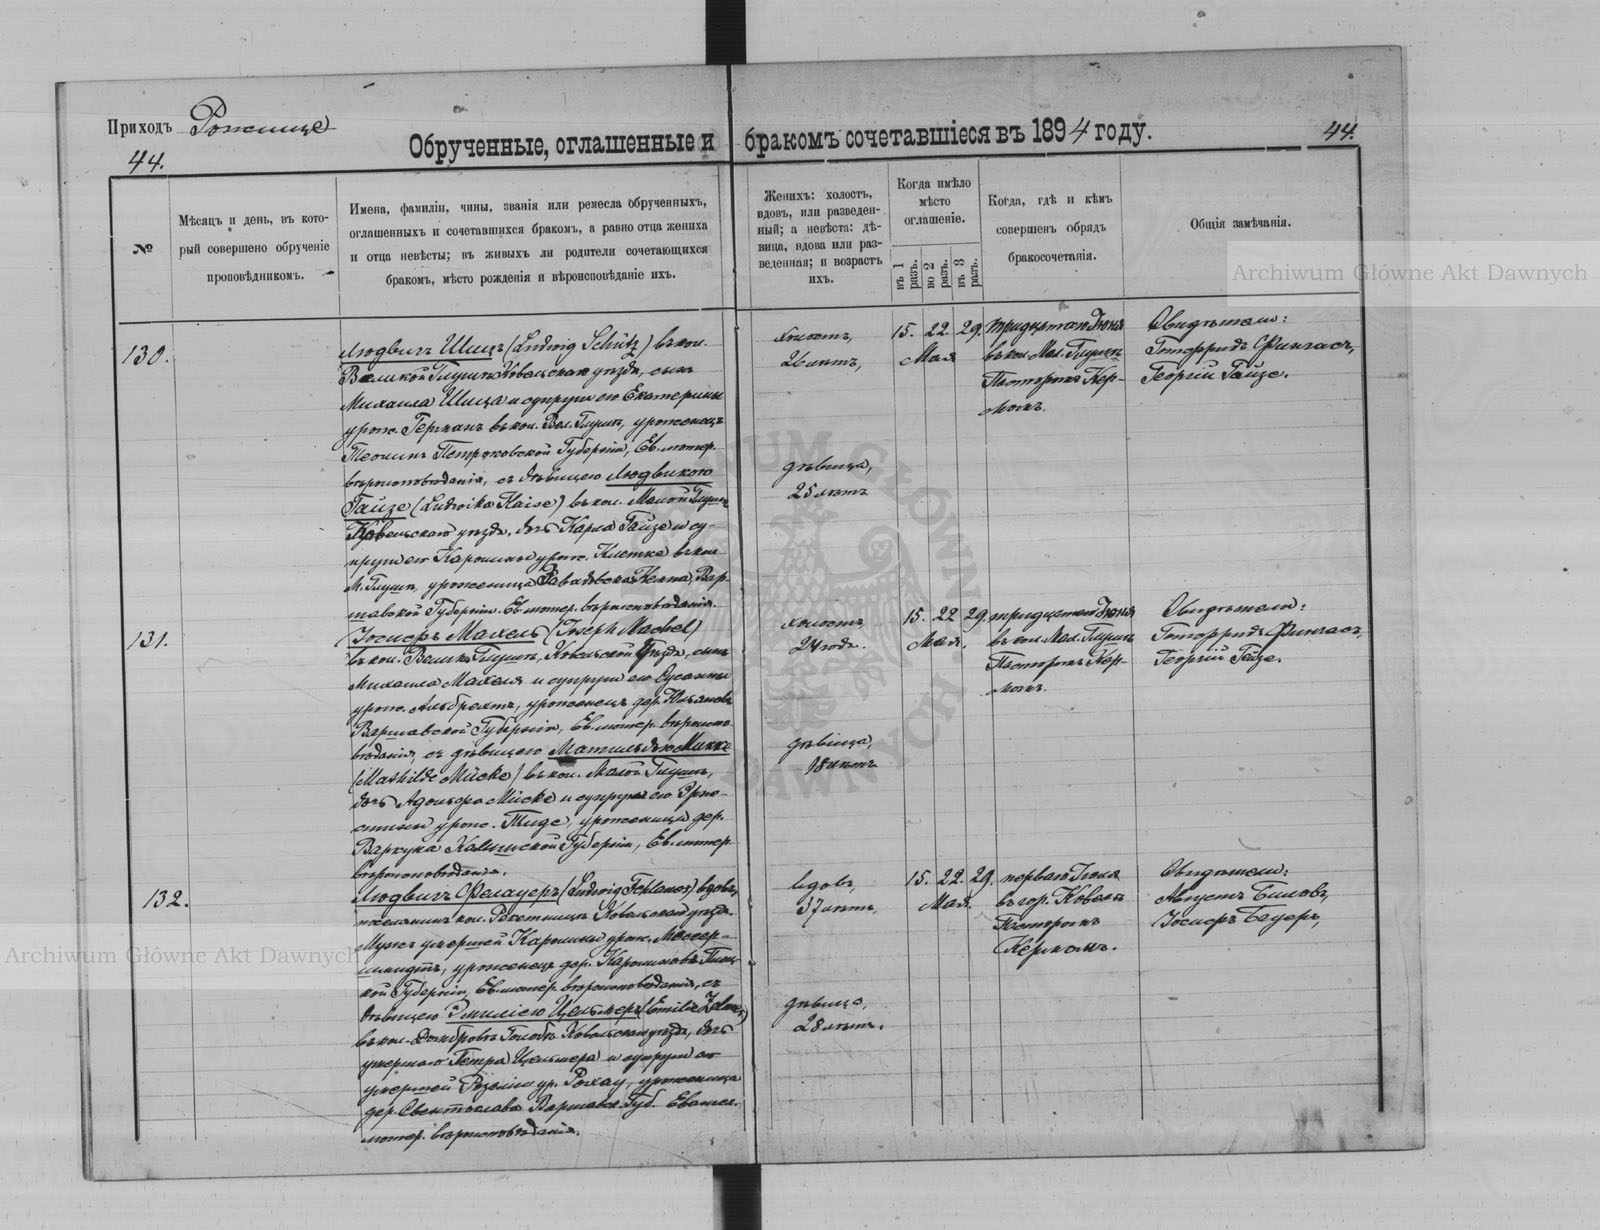 Приходъ Рожище
44.
Обрученные, оглашенные и бракомъ сочетавшіеся въ 1894 году.
44.
№
Мѣсяцъ и день, въ кото-
рый совершено обрученіе
проповѣдникомъ.
Имена, фамиліи, чины, званія или ремесла обрученныхъ,
оглашенныхъ и сочетавшихся бракомъ, а равно отца жениха
и отца невѣсты; въ живыхъ ли родители сочетающихся
бракомъ, мѣсто рожденія и вѣроисповѣданіе ихъ.
Женихъ: холостъ,
вдовъ, или разведен-
ный; а невѣста: дѣ-
вица, вдова или раз-
веденная; и возрастъ
ихъ.
Когда имѣло
мѣсто
оглашеніе.
въ 1 разъ.
во 2 разъ.
въ 3 разъ.
Когда, гдѣ и кѣмъ
совершенъ обрядъ
бракосочетанія.
Общія замѣчанія.
Archiwum Główne Akt Dawnych
130.
Людвигъ Шицъ (Ludwig Schütz) въ кол.
Великой Глушѣ Ковельскаго уѣзда, сынъ
Михаила Шица и супруги его Екатерины
урож. Германъ въ кол. Вел. Глушѣ, уроженецъ
Петроковской Губерніи, Ев. лютер.
вѣроисповѣданія, съ дѣвицею Людвикою
Гайзе (Ludwika Haise) въ кол. Малой Глушѣ
Ковельскаго уѣзда, дочь Карла Гайзе и су-
пруги его Каролины урож. Клетке въ кол.
М. Глушѣ, уроженица Вар-
шавской Губерніи. Ев. лютер. вѣроисповѣданія.
холостъ,
26 лѣтъ,
дѣвица,
25 лѣтъ
15. 22. 29.
Мая
тридцатаго Іюня
въ кол. Мал. Глушѣ
Пасторомъ Кер-
момъ.
Свидѣтели:
Готфридъ Фингасъ,
Георгій Гайзе.
131.
Іосифъ Махель (Joseph Machel)
въ кол. Велик. Глушѣ, Ковельской Уѣзда, сынъ
Михаила Махеля и супруги его Сусанны
урож. Альбрехтъ, уроженецъ дер. Юльяновъ
Варшавской Губерніи, Ев. лютер. вѣроиспо-
вѣданія, съ дѣвицею Матильдою Микке
(Mathilde Mücke) въ кол. Малой Глушѣ,
дочь Адольфа Mücke и супруги его Эрне-
стины урож. Тиде, уроженица дер.
Калишской Губерніи, Ев. лютер.
вѣроисповѣданія.
холостъ,
24 года.
дѣвица,
18 лѣтъ
15. 22 29.
Мая.
тридцатаго Іюня
въ кол. Мал. Глушѣ
Пасторомъ Кер-
момъ.
Свидѣтели:
Готфридъ Фингасъ,
Георгій Гайзе.
132.
Людвигъ (Ludwig) вдовъ,
поселянинъ кол. Ковельскаго уѣзда.
Мужъ умершей Каролины урож. Мессер-
шмидтъ, уроженецъ дер. Каролиновъ Плоц-
кой Губерніи, Ев. лютер. вѣроисповѣданія, съ
дѣвицею Эмиліею Цельмеръ (Emilie Zelmer)
въ кол. Домброва Ковельскаго уѣзда, дочь
умершаго Петра Цельмера и супруги его
умершей Розаліи ур. Рохау, уроженица
дер. Свентослава Варшавск. Губ. Евангел.
лютер. вѣроисповѣданія.
вдовъ,
37 лѣтъ,
дѣвица,
28 лѣтъ.
15. 22. 29.
Мая.
перваго Іюля
въ гор. Ковелѣ
Пасторомъ
Кермомъ.
Свидѣтели:
Августъ Биловъ,
Іосифъ Бедеръ,
Archiwum Główne Akt Dawnych